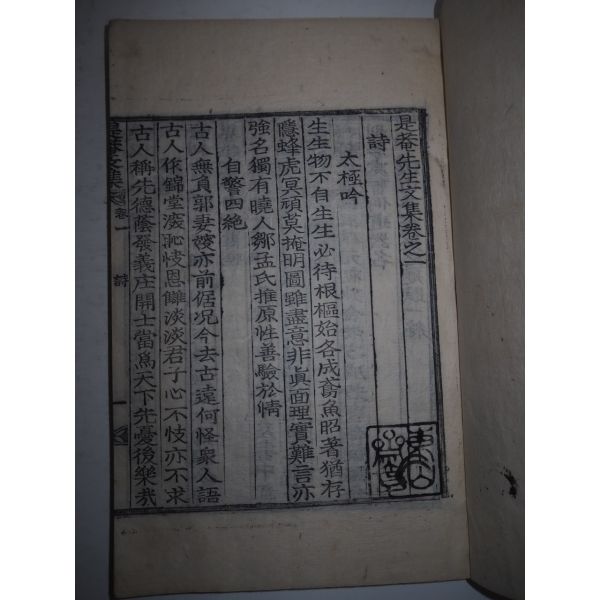 是菴先生文集卷之一
詩
太極吟
生生物不自生生必待根樞始各成鳶魚昭著猶存
隱蜂虎冥頑莫掩明圖雖盡意非眞面理實難言亦
強名獨有曉人鄒孟氏推原性善驗於情
自警四絶
古人無負郭妻嫂亦前倨况今去古遠何怪衆人語
古人侈錦堂渡恥忮恩讎淡淡君子心不忮亦不求
古人稱先德蔭發義庄開士當爲天下先憂後樂哉
是菴文集 卷一 詩 一